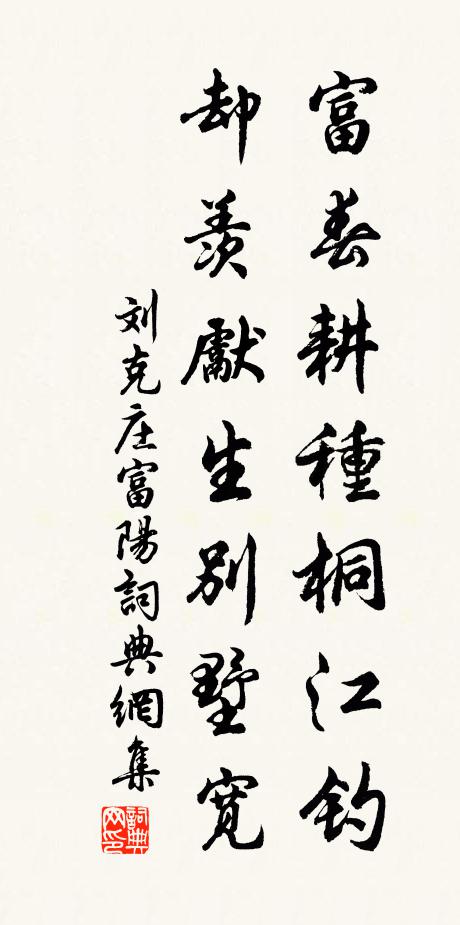 富春耕種桐江釣
却羨獻生別墅寬
刘克庄富陽詞典網集
詞典網印